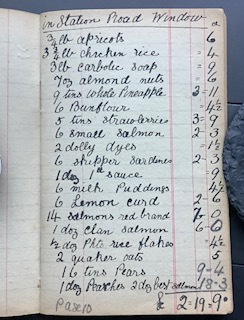 in Station Road Window d
3/4 lb apricots 6
3 1/2 lb chicken rice = 4
3 lb carbolic soap = 9
7oz almond nuts = 6
9 tins whole Pineapple 3=11
6 Bunflour = 4½
5 tins strawberries 3=9
6 small salmon 2=3
2 dolly dyes = 1½
6 skipper sardines 2 3
1 doz 1st sauce 9
6 milk Puddings 4½
6 Lemon curd 2-6
14 salmons red brand 7-0
1 doz clan salmon 6 0
½ doz Pkts rice flakes = 4½
2 quaker oats 5
16 tins Pears 9-4
1 doz Peaches 2 doz best salmon 18-3
£ 2-19-9